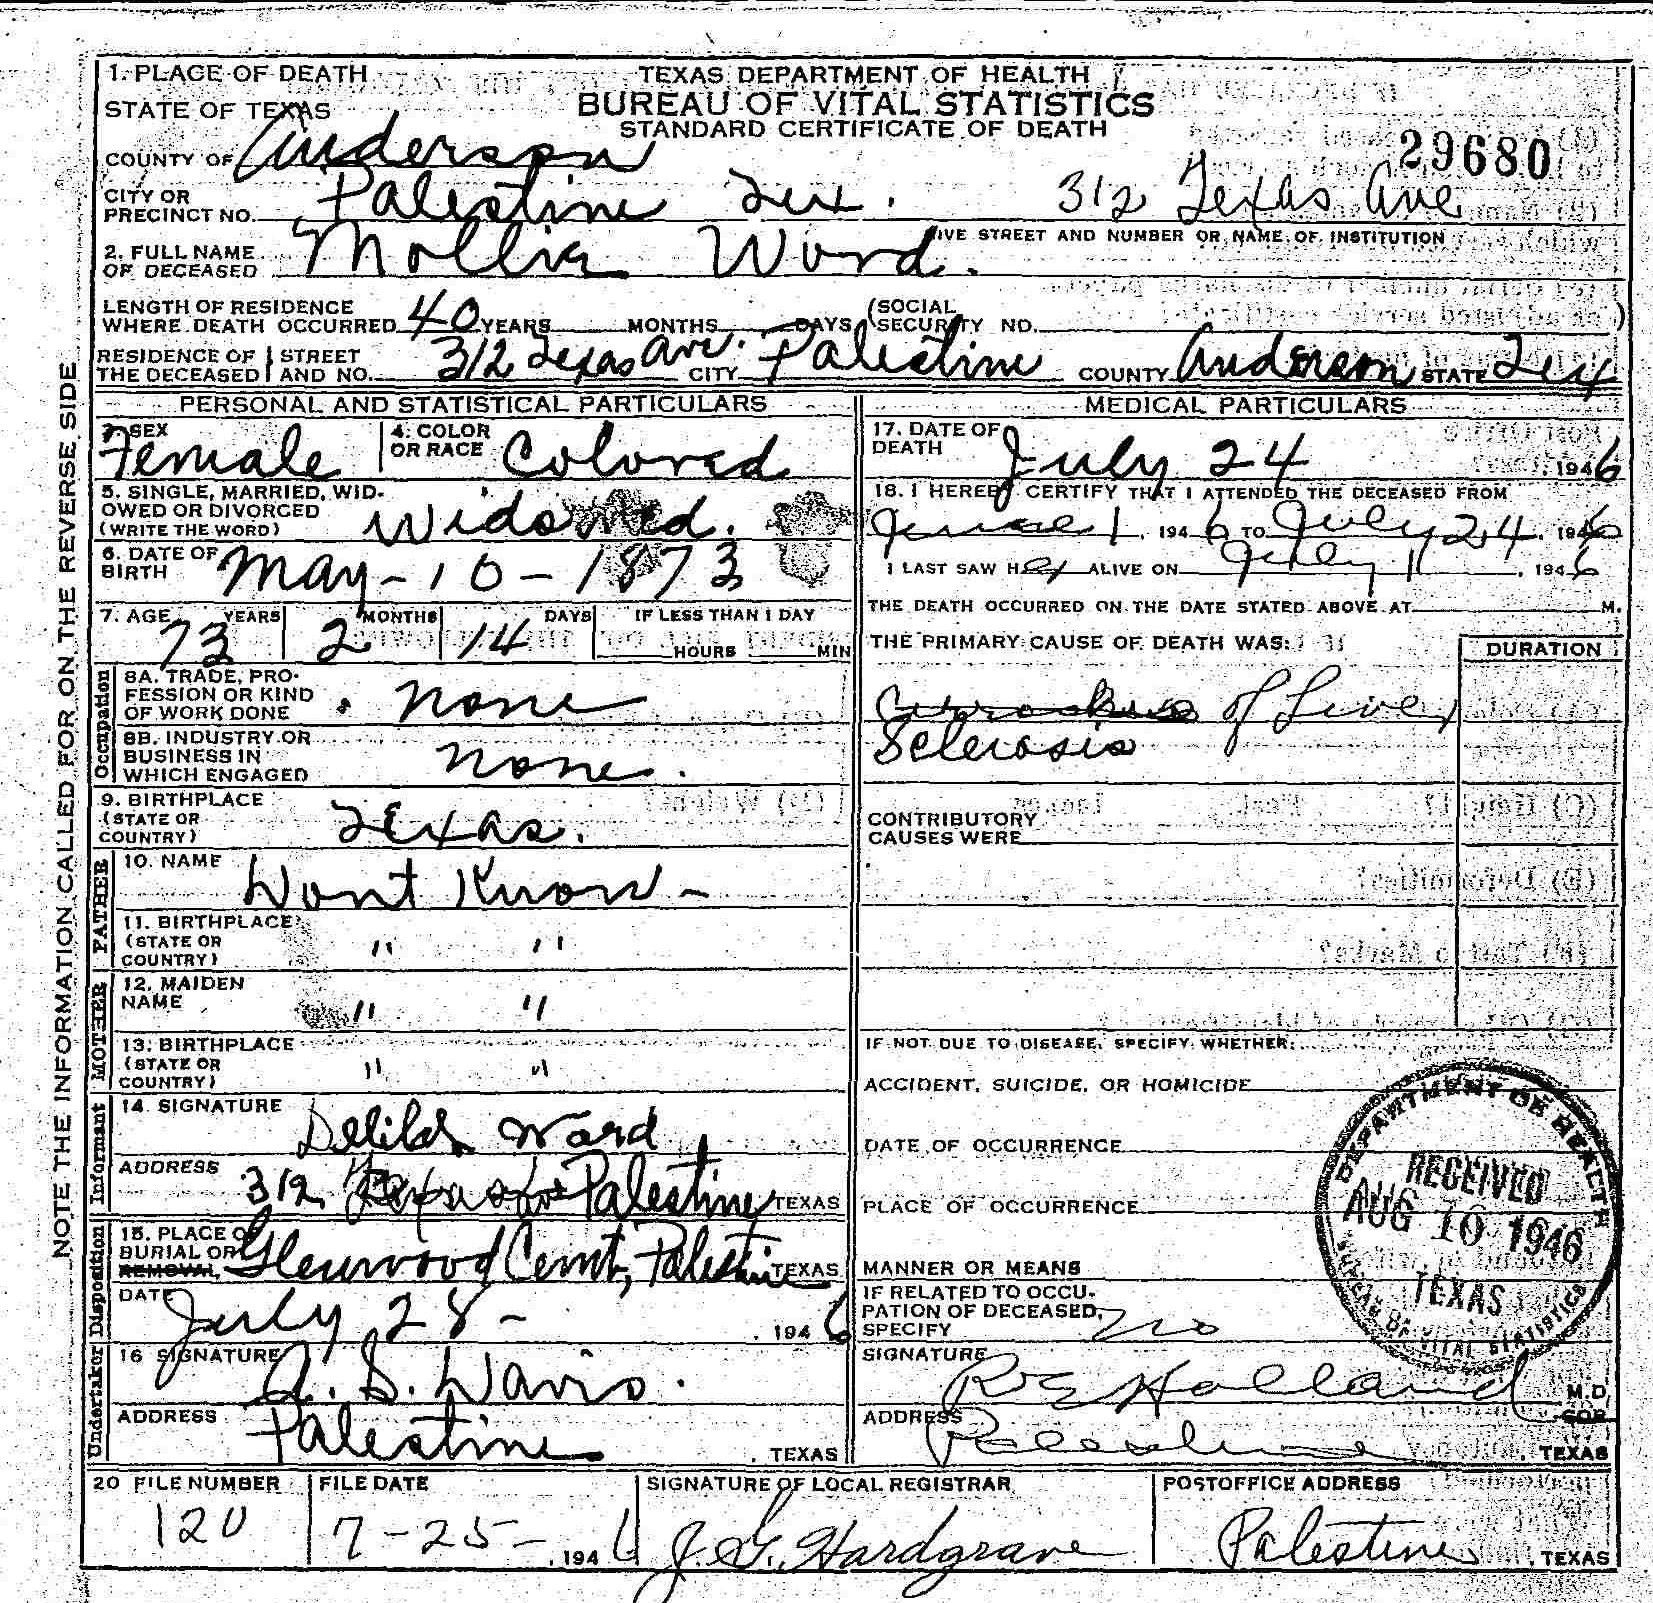 1. PLACE OF DEATH
STATE OF TEXAS
TEXAS DEPARTMENT OF HEALTH
BUREAU OF VITAL STATISTICS
STANDARD CERTIFICATE OF DEATH
29680
COUNTY OF Anderson
CITY OR PRECINCT NO. Palestine Tex. 312 Texas Ave
GIVE STREET AND NUMBER OR NAME OF INSTITUTION
2. FULL NAME OF DECEASED Mollie Ward.
LENGTH OF RESIDENCE WHERE DEATH OCCURRED 40 YEARS MONTHS DAYS (SOCIAL SECURITY NO. )
RESIDENCE OF THE DECEASED STREET AND NO. 312 Texas Ave. CITY Palestine COUNTY Anderson STATE Tex
PERSONAL AND STATISTICAL PARTICULARS
3. SEX Female 4. COLOR OR RACE Colored
5. SINGLE, MARRIED, WIDOWED OR DIVORCED (WRITE THE WORD) Widowed.
6. DATE OF BIRTH May-10-1873
7. AGE 73 YEARS 2 MONTHS 14 DAYS IF LESS THAN 1 DAY HOURS MIN
Occupation
8A. TRADE, PROFESSION OR KIND OF WORK DONE none
8B. INDUSTRY OR BUSINESS IN WHICH ENGAGED none.
9. BIRTHPLACE (STATE OR COUNTRY) Texas.
FATHER
10. NAME Dont Know -
11. BIRTHPLACE (STATE OR COUNTRY) " "
MOTHER
12. MAIDEN NAME " "
13. BIRTHPLACE (STATE OR COUNTRY) " "
Informant
14. SIGNATURE Delila Ward
ADDRESS 312 Texas Ave Palestine TEXAS
Disposition
15. PLACE OF BURIAL OR REMOVAL Glenwood Cemt, Palestine TEXAS
DATE July 28 - 1946
Undertaker
16 SIGNATURE A. S. Davis.
ADDRESS Palestine, TEXAS
MEDICAL PARTICULARS
17. DATE OF DEATH July 24, 1946
18. I HEREBY CERTIFY THAT I ATTENDED THE DECEASED FROM
June 1, 1946 TO July 24, 1946
I LAST SAW HER ALIVE ON July 11, 1946
THE DEATH OCCURRED ON THE DATE STATED ABOVE AT M.
THE PRIMARY CAUSE OF DEATH WAS: DURATION
of Liver
Sclerosis
CONTRIBUTORY CAUSES WERE
IF NOT DUE TO DISEASE, SPECIFY WHETHER:
ACCIDENT, SUICIDE, OR HOMICIDE
DATE OF OCCURRENCE
PLACE OF OCCURRENCE
MANNER OR MEANS
IF RELATED TO OCCUPATION OF DECEASED, SPECIFY no
SIGNATURE Holland M.D. COR.
ADDRESS Palestine, TEXAS
DEPARTMENT OF HEALTH
RECEIVED
AUG 10 1946
TEXAS
BUREAU OF VITAL STATISTICS
20 FILE NUMBER FILE DATE SIGNATURE OF LOCAL REGISTRAR POSTOFFICE ADDRESS
120 7-25-, 1946 J. G. Hardgrave Palestine, TEXAS
NOTE THE INFORMATION CALLED FOR ON THE REVERSE SIDE